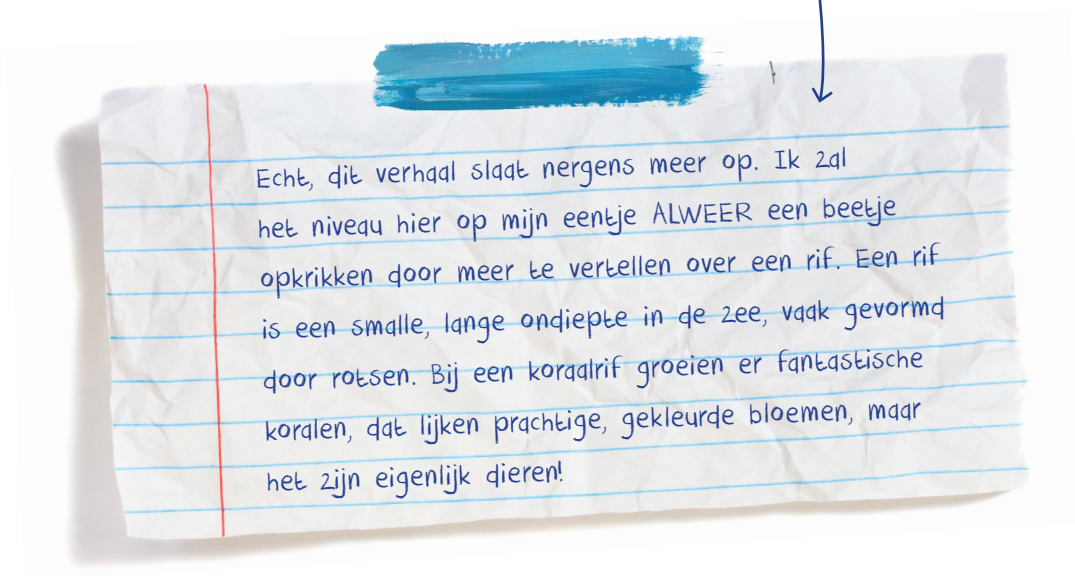 Echt, dit verhaal slaat nergens meer op. Ik zal
het niveau hier op mijn eentje ALWEER een beetje
opkrikken door meer te vertellen over een rif. Een rif
is een smalle, lange ondiepte in de zee, vaak gevormd
door rotsen. Bij een koraalrif groeien er fantastische
koralen, dat lijken prachtige, gekleurde bloemen, maar
het zijn eigenlijk dieren!